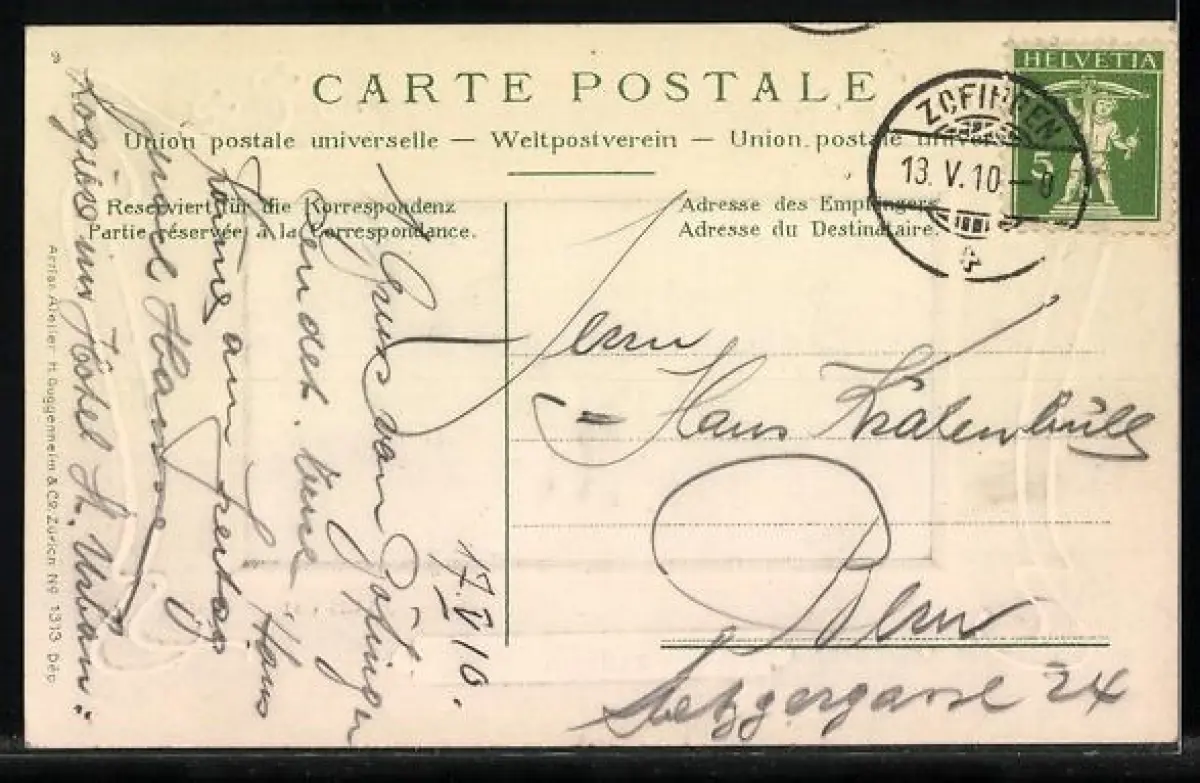 CARTE POSTALE
Union postale universelle — Weltpostverein — Union postale universelle
HELVETIA
5
ZOFINGEN
13. V. 10 – 8
4
Reserviert für die Korrespondenz
Partie réservée à la Correspondance.
Adresse des Empfängers.
Adresse du Destinataire.
17. V 10.
Gruss von Zofingen
sendet.
Komme am Freitag
Hans
Logiere im Hôtel St. Urban.
Herrn
Hans
Bern
Metzgergasse 24
Atelier H. Guggenheim & Co. Zürich No. 1313 Dép.